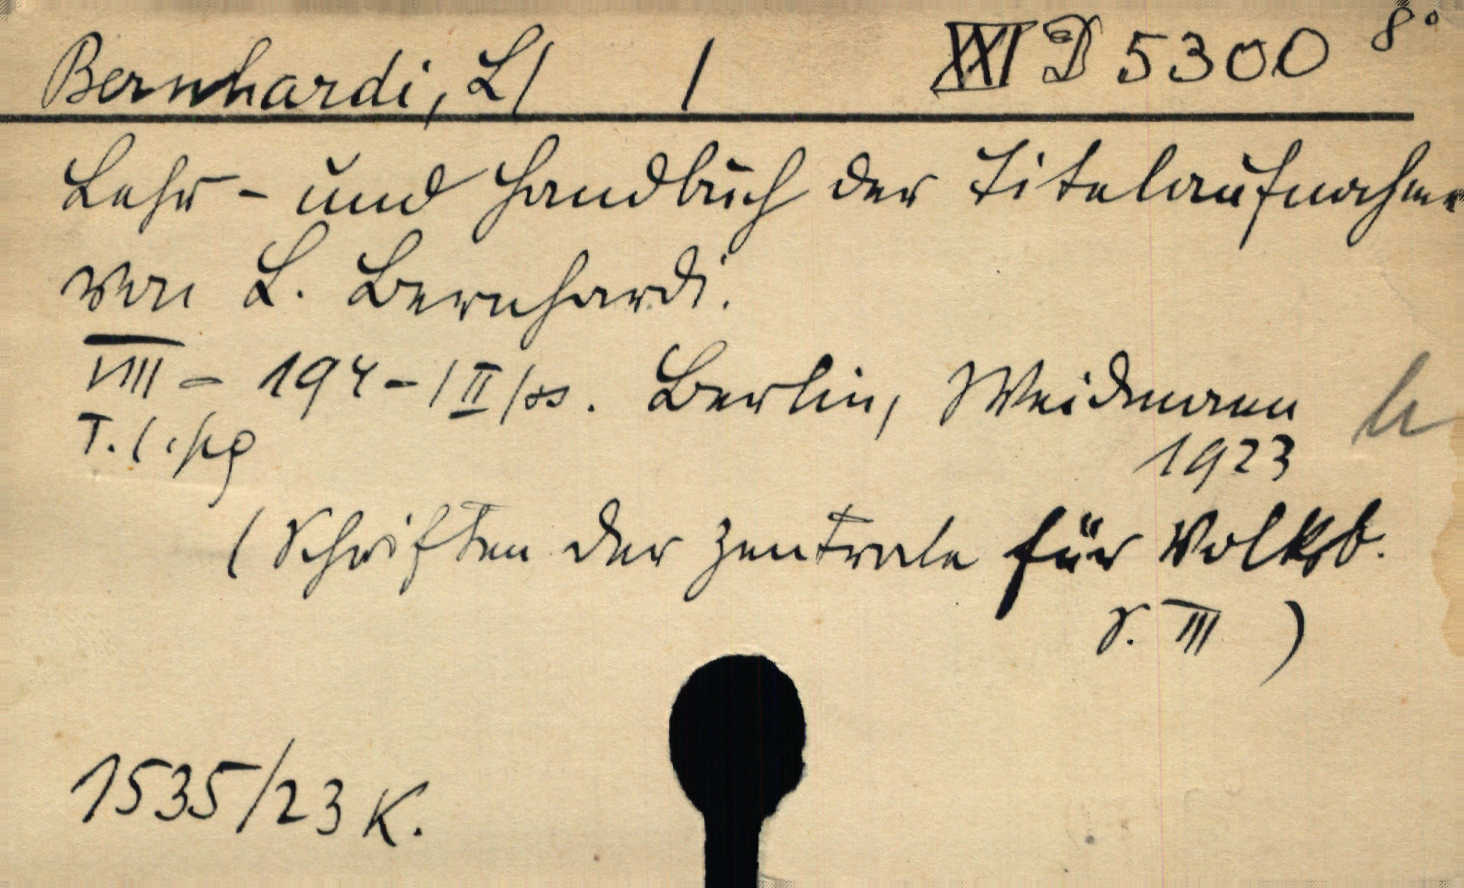 Bernhardi, L/ / XXI D 5300 8°
Lehr- und Handbuch der Titelaufnahme
von L. Bernhardi.
VIII - 194 - /II/ SS. Berlin, Weidmann h
1923
(Schriften der Zentrale für Volksb.
S. III )
1535/23 K.